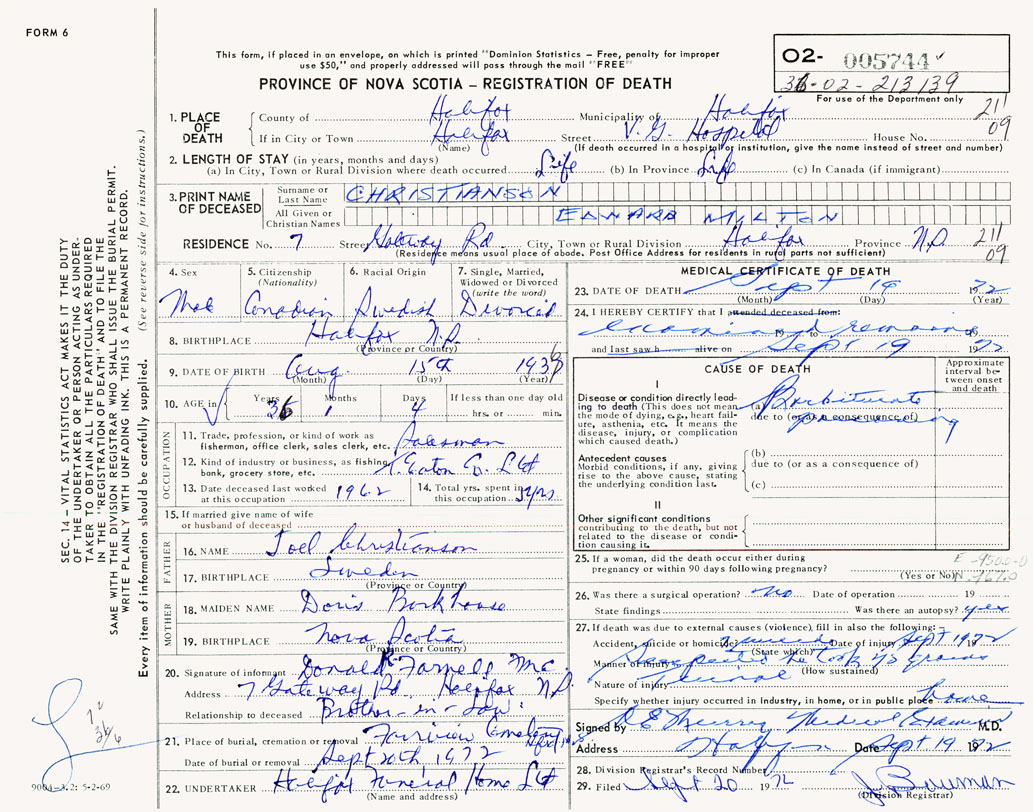 FORM 6
This form, if placed in an envelope, on which is printed "Dominion Statistics – Free, penalty for improper
use $50," and properly addressed will pass through the mail "FREE"
O2- 005744
36-02-213139
For use of the Department only
PROVINCE OF NOVA SCOTIA – REGISTRATION OF DEATH
211
09
1. PLACE OF DEATH
County of Halifax Municipality of Halifax
If in City or Town Halifax Street V. G. Hospital House No.
(Name) (If death occurred in a hospital or institution, give the name instead of street and number)
2. LENGTH OF STAY (in years, months and days)
(a) In City, Town or Rural Division where death occurred Life (b) In Province Life (c) In Canada (if immigrant)
3. PRINT NAME OF DECEASED
Surname or Last Name CHRISTIANSON
All Given or Christian Names EDWARD MILTON
RESIDENCE No. 7 Street Rd. City, Town or Rural Division Halifax Province N.S.
211
09
(Residence means usual place of abode. Post Office Address for residents in rural parts not sufficient)
4. Sex
Male
5. Citizenship (Nationality)
Canadian
6. Racial Origin
Swedish
7. Single, Married, Widowed or Divorced (write the word)
Divorced
8. BIRTHPLACE Halifax N.S.
(Province or Country)
9. DATE OF BIRTH Aug. 15th 1936
(Month) (Day) (Year)
10. AGE in Years 36 Months 1 Days 4 If less than one day old hrs. or min.
OCCUPATION
11. Trade, profession, or kind of work as fisherman, office clerk, sales clerk, etc. Salesman
12. Kind of industry or business, as fishing, bank, grocery store, etc. T. Eaton Co. Ltd
13. Date deceased last worked at this occupation 1962
14. Total yrs. spent in this occupation yrs
15. If married give name of wife or husband of deceased
FATHER
16. NAME Joel Christianson
17. BIRTHPLACE Sweden
(Province or Country)
MOTHER
18. MAIDEN NAME Doris Barkhouse
19. BIRTHPLACE Nova Scotia
(Province or Country)
20. Signature of informant Donald
Address 7 Rd. Halifax N.S.
Relationship to deceased Brother-in-Law
21. Place of burial, cremation or removal Fairview Cemetery
Date of burial or removal Sept 20th 1972
22. UNDERTAKER Halifax Funeral Home Ltd
(Name and address)
MEDICAL CERTIFICATE OF DEATH
23. DATE OF DEATH Sept 19 1972
(Month) (Day) (Year)
24. I HEREBY CERTIFY that I attended deceased from:
examined remains
19 to 19
and last saw h alive on Sept 19 1972
CAUSE OF DEATH
Approximate interval between onset and death
I
Disease or condition directly leading to death (This does not mean the mode of dying, e.g., heart failure, asthenia, etc. It means the disease, injury, or complication which caused death.)
(a) Barbiturate
due to (or as a consequence of)
poisoning
Antecedent causes
Morbid conditions, if any, giving rise to the above cause, stating the underlying condition last.
(b)
due to (or as a consequence of)
(c)
II
Other significant conditions
contributing to the death, but not related to the disease or condition causing it.
25. If a woman, did the death occur either during pregnancy or within 90 days following pregnancy?
(Yes or No)
26. Was there a surgical operation? no Date of operation 19
State findings Was there an autopsy? yes
27. If death was due to external causes (violence), fill in also the following:–
Accident, suicide or homicide? Date of injury Sept 1972
(State which)
Manner of injury Suspected he took
(How sustained)
Nature of injury
Specify whether injury occurred in Industry, in home, or in public place home
Signed by Medical Examiner M.D.
Address Date Sept 19 1972
28. Division Registrar's Record Number
29. Filed Sept 20 1972 J. Bowman
(Division Registrar)
SEC. 14 – VITAL STATISTICS ACT MAKES IT THE DUTY
OF THE UNDERTAKER OR PERSON ACTING AS UNDER-
TAKER TO OBTAIN ALL THE PARTICULARS REQUIRED
IN THE "REGISTRATION OF DEATH" AND TO FILE THE
SAME WITH THE DIVISION REGISTRAR WHO SHALL ISSUE THE BURIAL PERMIT.
WRITE PLAINLY WITH UNFADING INK. THIS IS A PERMANENT RECORD.
Every item of information should be carefully supplied. (See reverse side for instructions.)